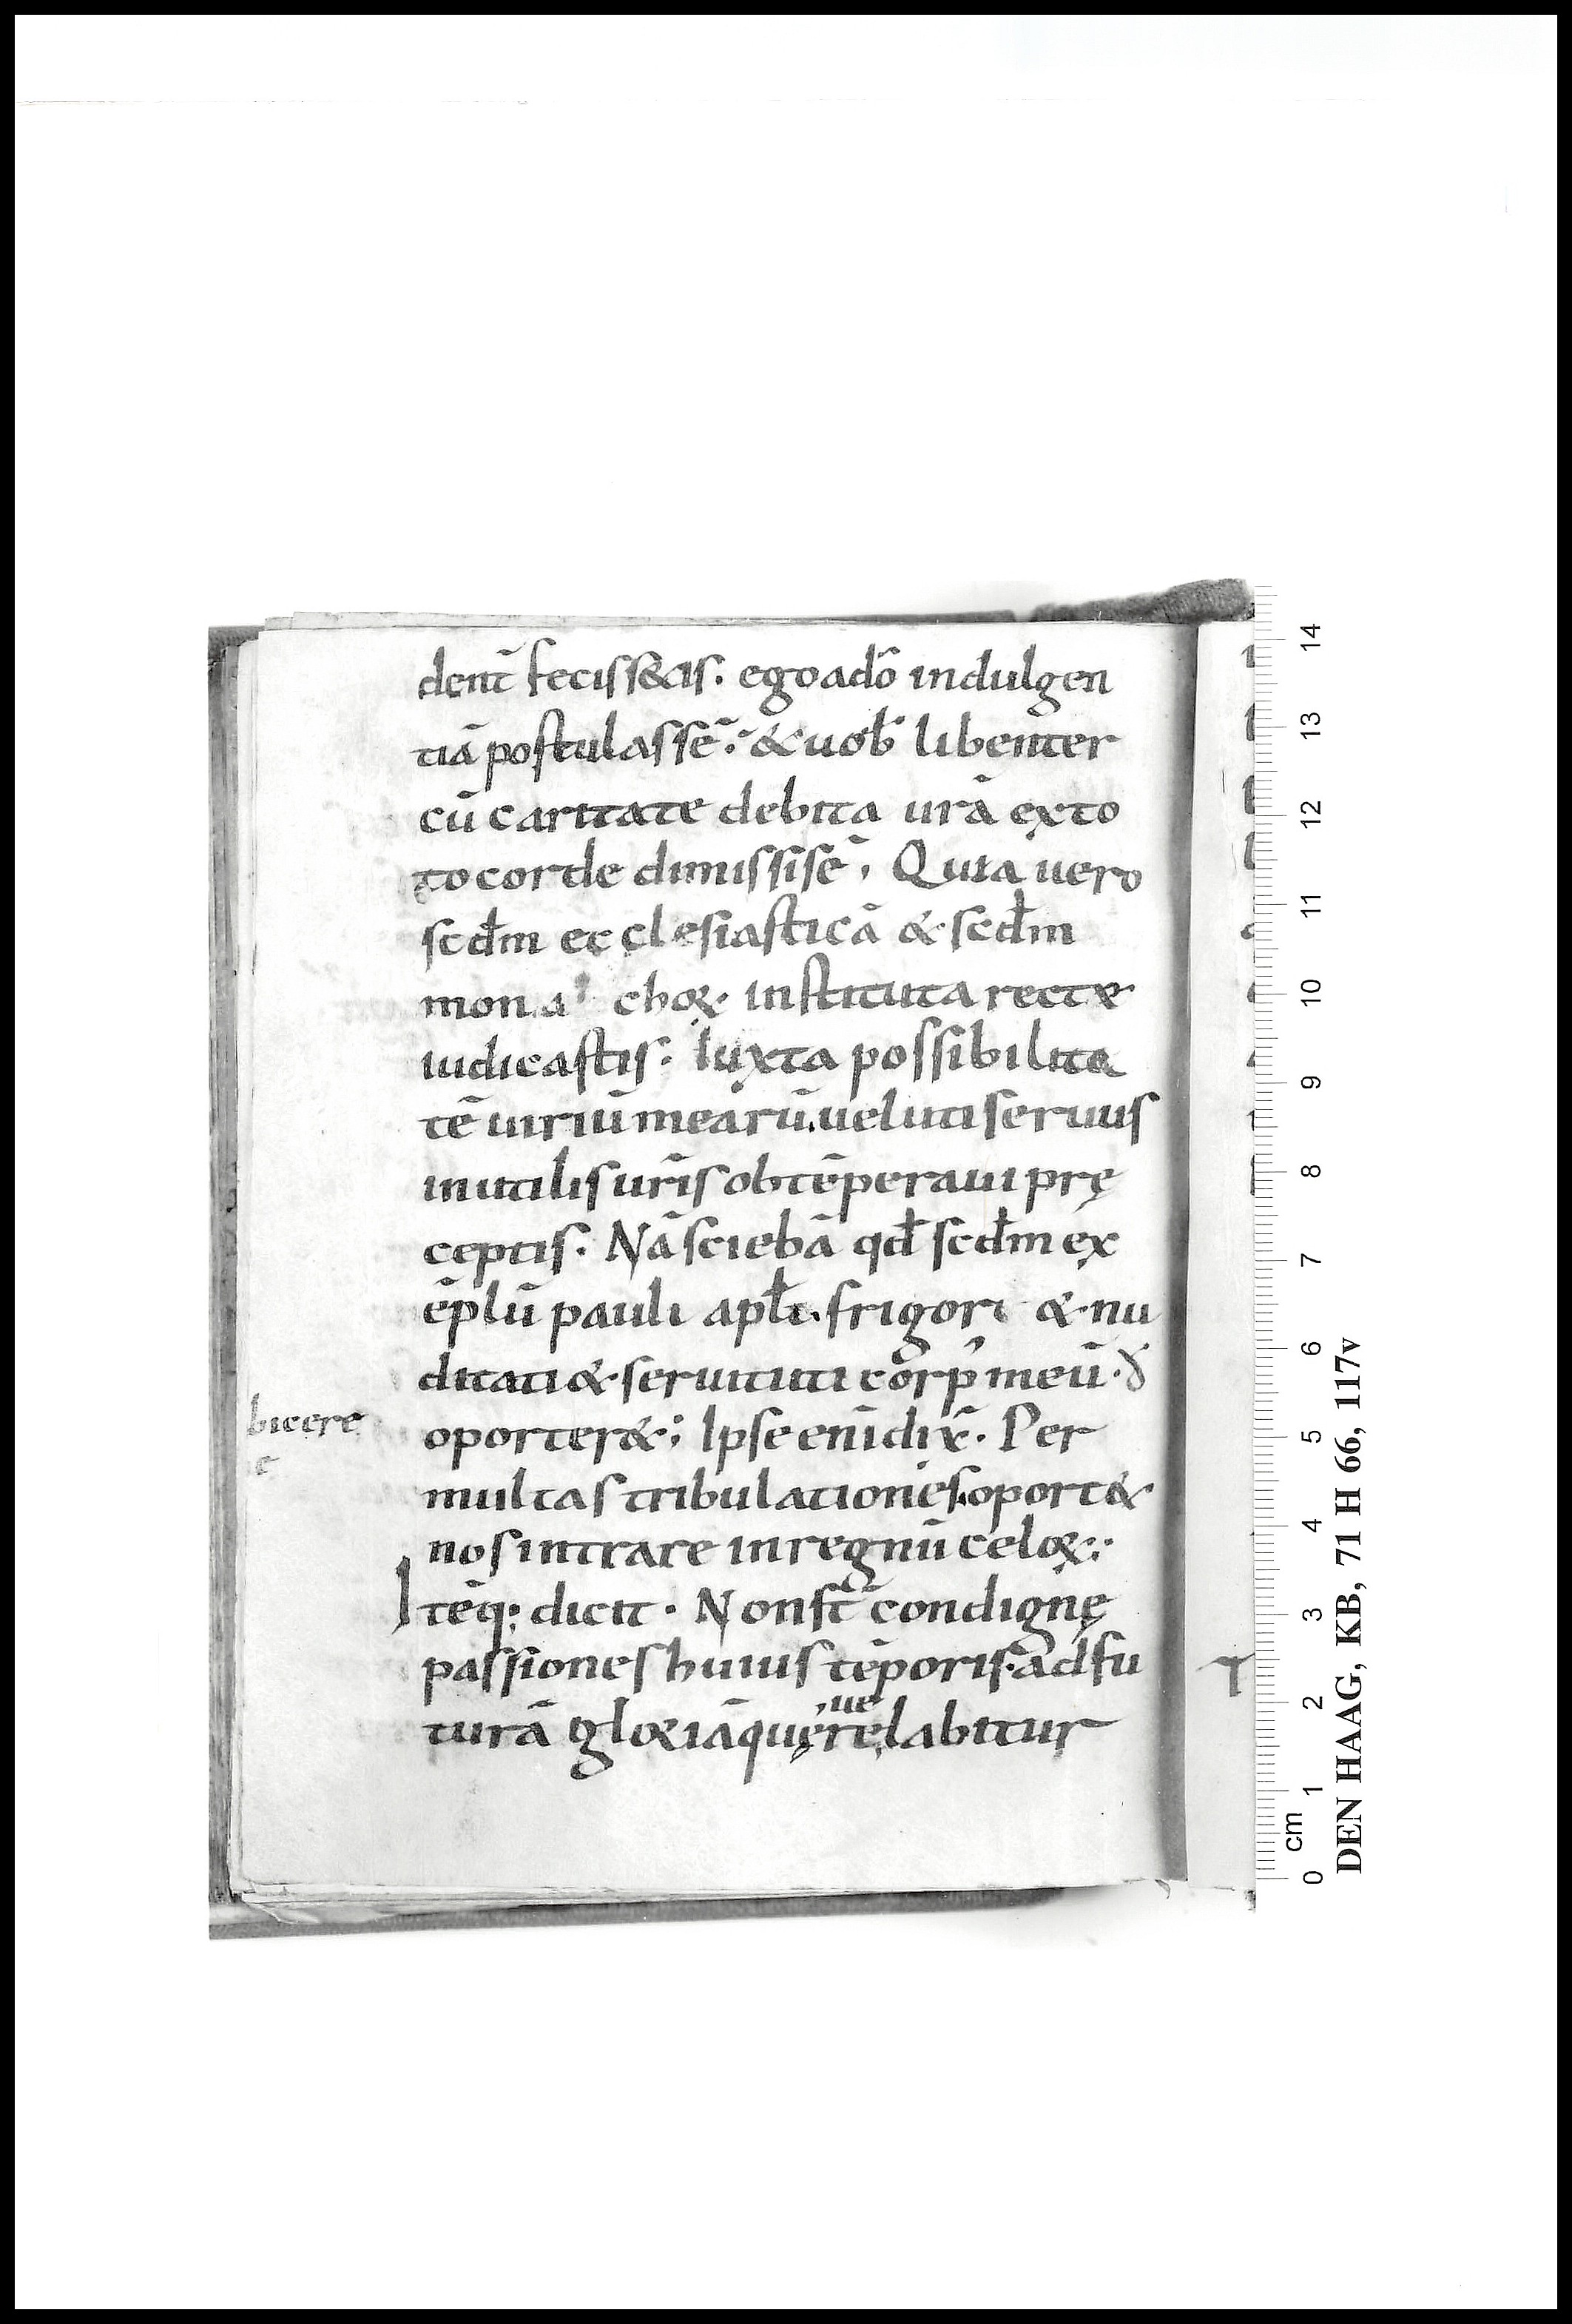 dent̄ feciss&is. ego ad õ indulgen
tiā postulassē. & uob̄ libenter
cū caritate debita urā ex to
to corde dimissisē, Quia uero
scd̄m ecclesiasticā & scd̄m
mona choꝝ instituta recte
iudicastis. Iuxta possibilita
tē uiriū mearū. ueluti seruus
inutilis ur̄is obtēperaui prę
ceptis. Nā sciebā qd̄ scd̄m ex
ēplū pauli apl̄i. frigori & nu
ditati & seruituti corp' meū.
bicere
oporter&; Ipse enī dix̄. Per
multas tribulationes. oport&
nos intrare in regnū celoꝝ:
Itēq; dicit. Non st̄ condignę
passiones huius tēporis. ad fu
turā gloriā quę reuelabitur
14
13
12
11
10
9
8
7
6
5
4
3
2
1
0
cm
DEN HAAG, KB, 71 H 66, 117v